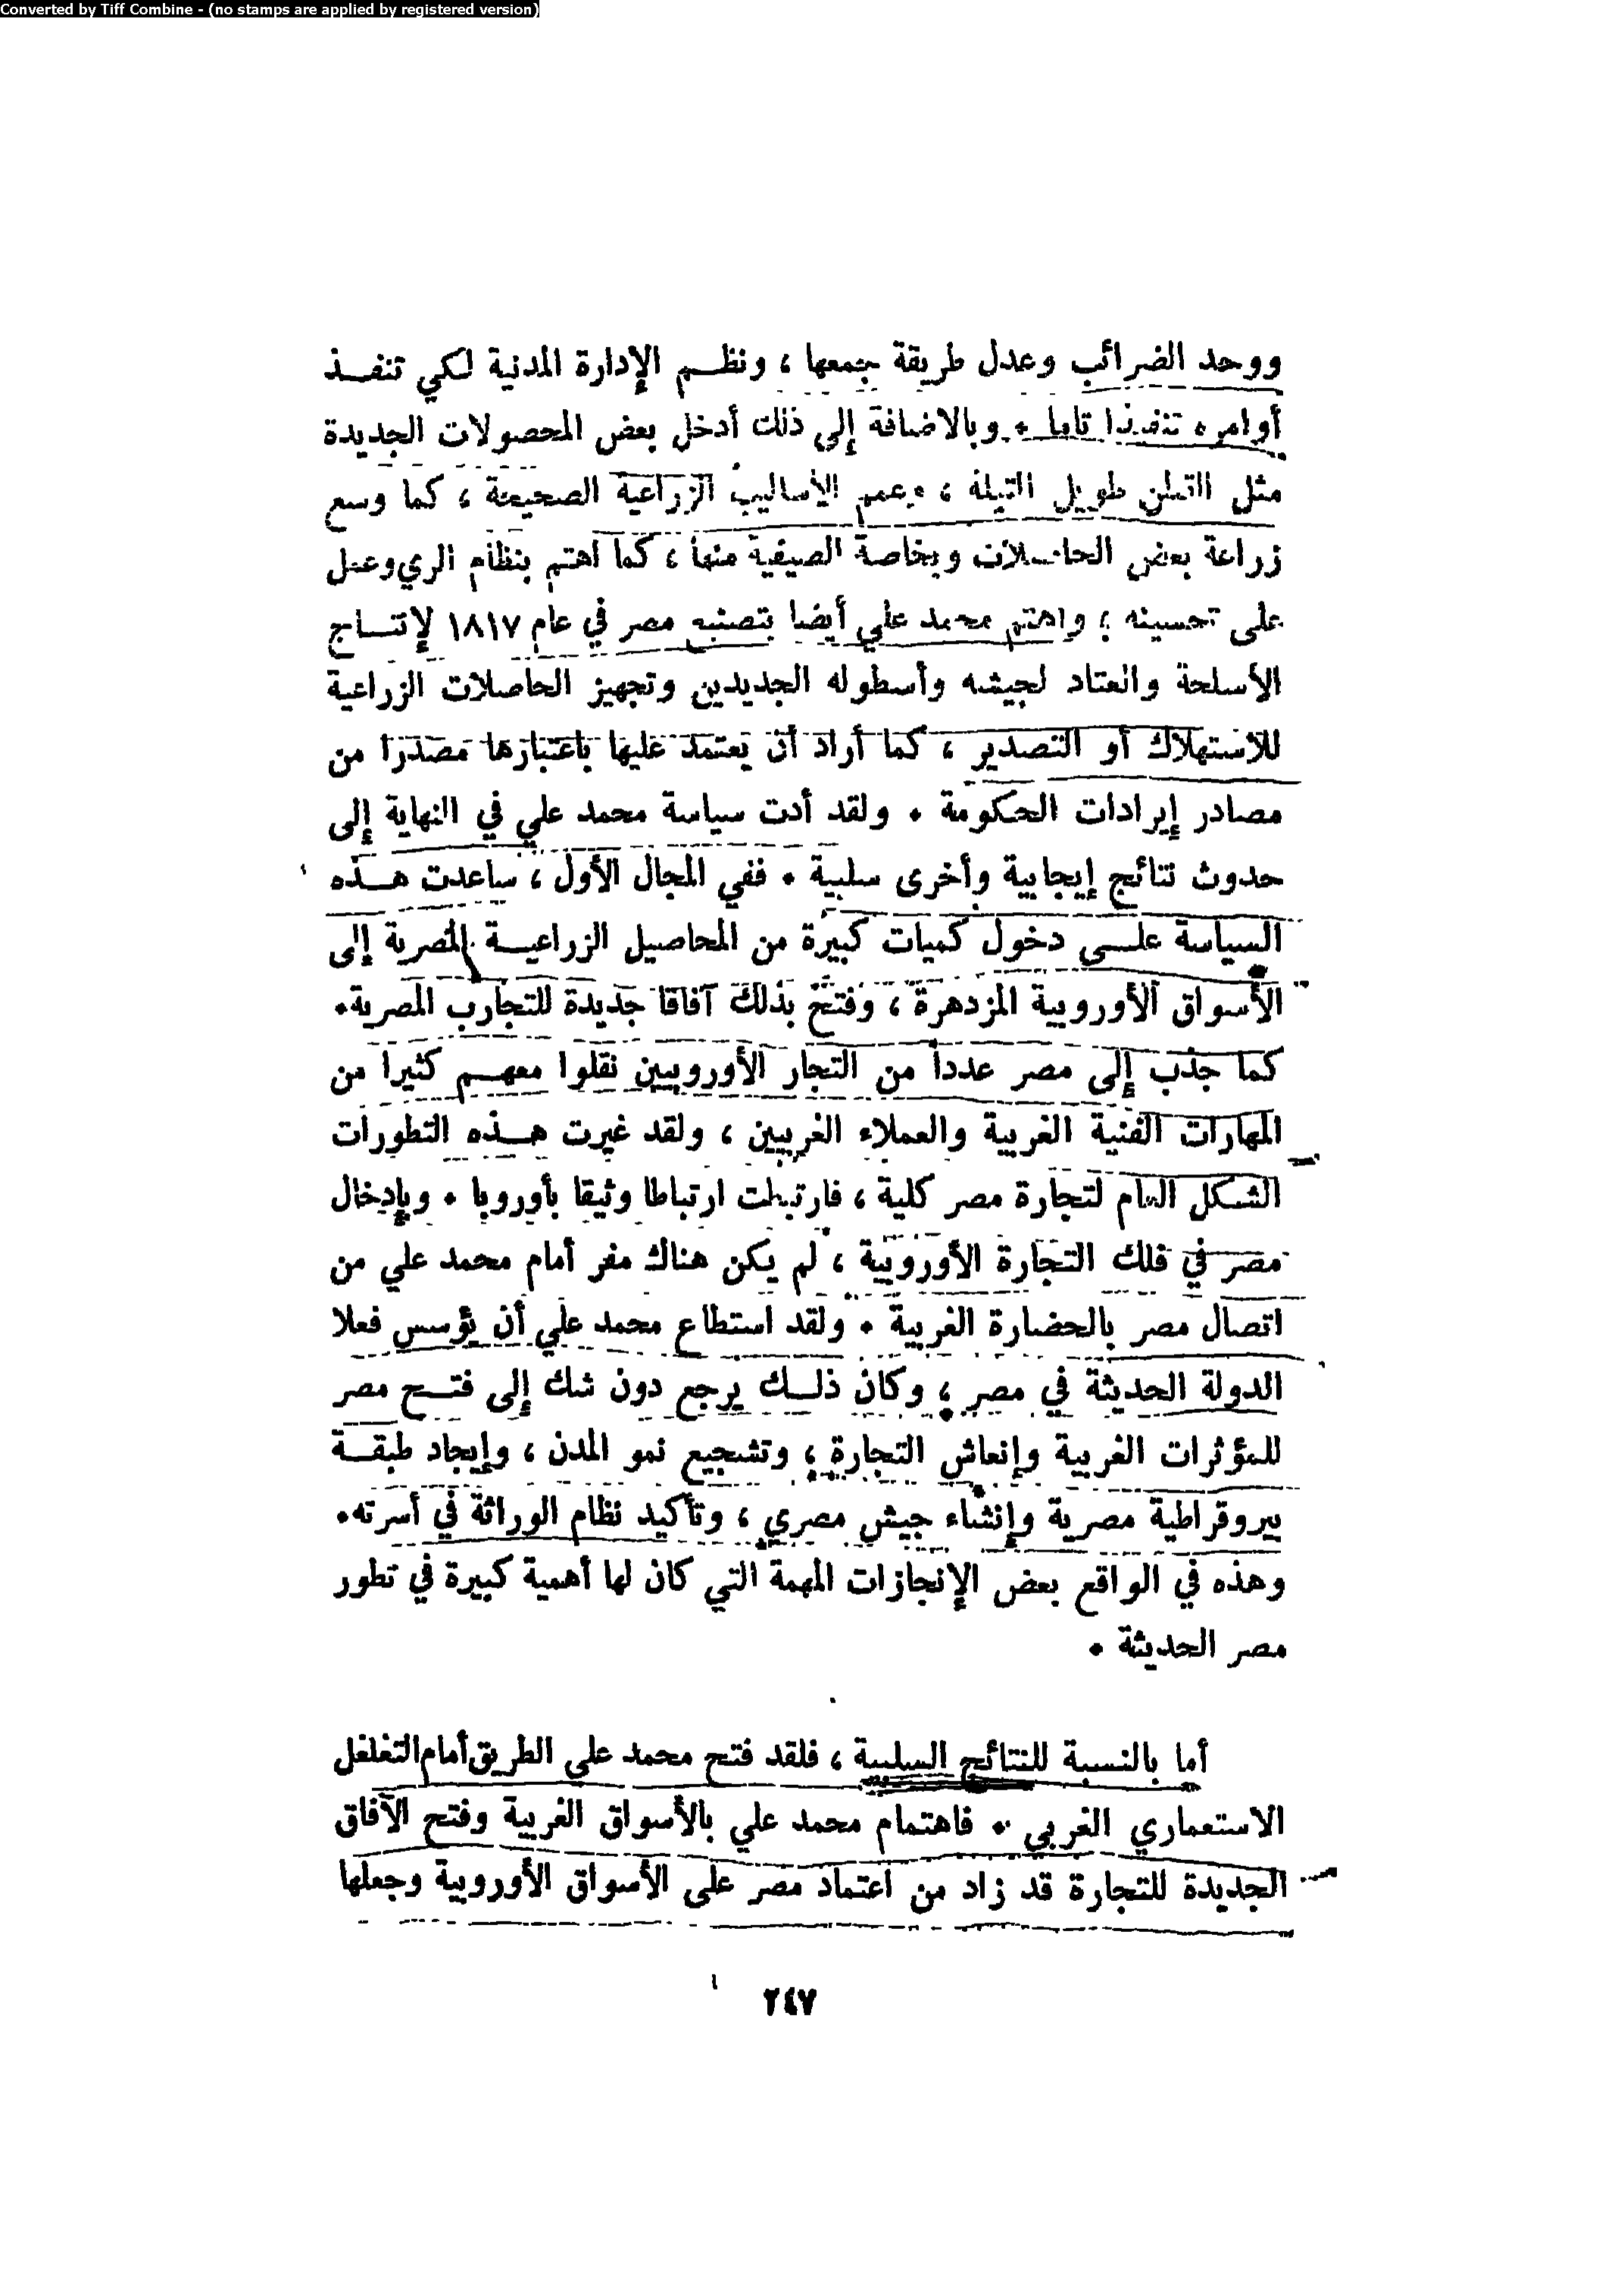 Converted by Tiff Combine - (no stamps are applied by registered version)
ووحد الضرائب وعدل طريقة جمعها ، ونظــم الإدارة المدنية لكي تنفــذ
أوامره تنفيذا تاما . وبالاضافة إلى ذلك أدخل بعض المحصولات الجديدة
مثل القطن طويل التيلة ، وعمم الأساليب الزراعية الصحيحة ، كما وسع
زراعة بعض الحاصلات وبخاصة الصيفية منها ، كما اهتم بنظام الري وعمل
على تحسينه ؛ واهتم محمد علي أيضا بتصنيع مصر في عام ١٨١٧ لإنتــاج
الأسلحة والعتاد لجيشه وأسطوله الجديدين وتجهيز الحاصلات الزراعية
للاستهلاك أو التصدير ، كما أراد أن يعتمد عليها باعتبارها مصدرا من
مصادر إيرادات الحكومة . ولقد أدت سياسة محمد علي في النهاية إلى
حدوث نتائج إيجابية وأخرى سلبية . ففي المجال الأول ، ساعدت هــذه
السياسة علــى دخول كميات كبيرة من المحاصيل الزراعيــة المصرية إلى
الأسواق الأوروبية المزدهرة ، وفتح بذلك آفاقا جديدة للتجارب المصرية.
كما جذب إلى مصر عدداً من التجار الأوروبيين نقلوا معهــم كثيرا من
المهارات الفنية الغربية والعملاء الغربيين ، ولقد غيرت هــذه التطورات
الشكل العام لتجارة مصر كلية ، فارتبطت ارتباطا وثيقا بأوروبا . وبإدخال
مصر في فلك التجارة الأوروبية ، لم يكن هناك مفر أمام محمد علي من
اتصال مصر بالحضارة الغربية . ولقد استطاع محمد علي أن يؤسس فعلا
الدولة الحديثة في مصر ؛ وكان ذلــك يرجع دون شك إلى فتــح مصر
للمؤثرات الغربية وإنعاش التجارة ؛ وتشجيع نمو المدن ، وإيجاد طبقــة
بيروقراطية مصرية وإنشاء جيش مصري ، وتأكيد نظام الوراثة في أسرته.
وهذه في الواقع بعض الإنجازات المهمة التي كان لها أهمية كبيرة في تطور
مصر الحديثة .
أما بالنسبة للنتائج السلبية ، فلقد فتح محمد علي الطريق أمام التغلغل
الاستعماري الغربي . فاهتمام محمد علي بالأسواق الغربية وفتح الآفاق
الجديدة للتجارة قد زاد من اعتماد مصر على الأسواق الأوروبية وجعلها
٢٤٧